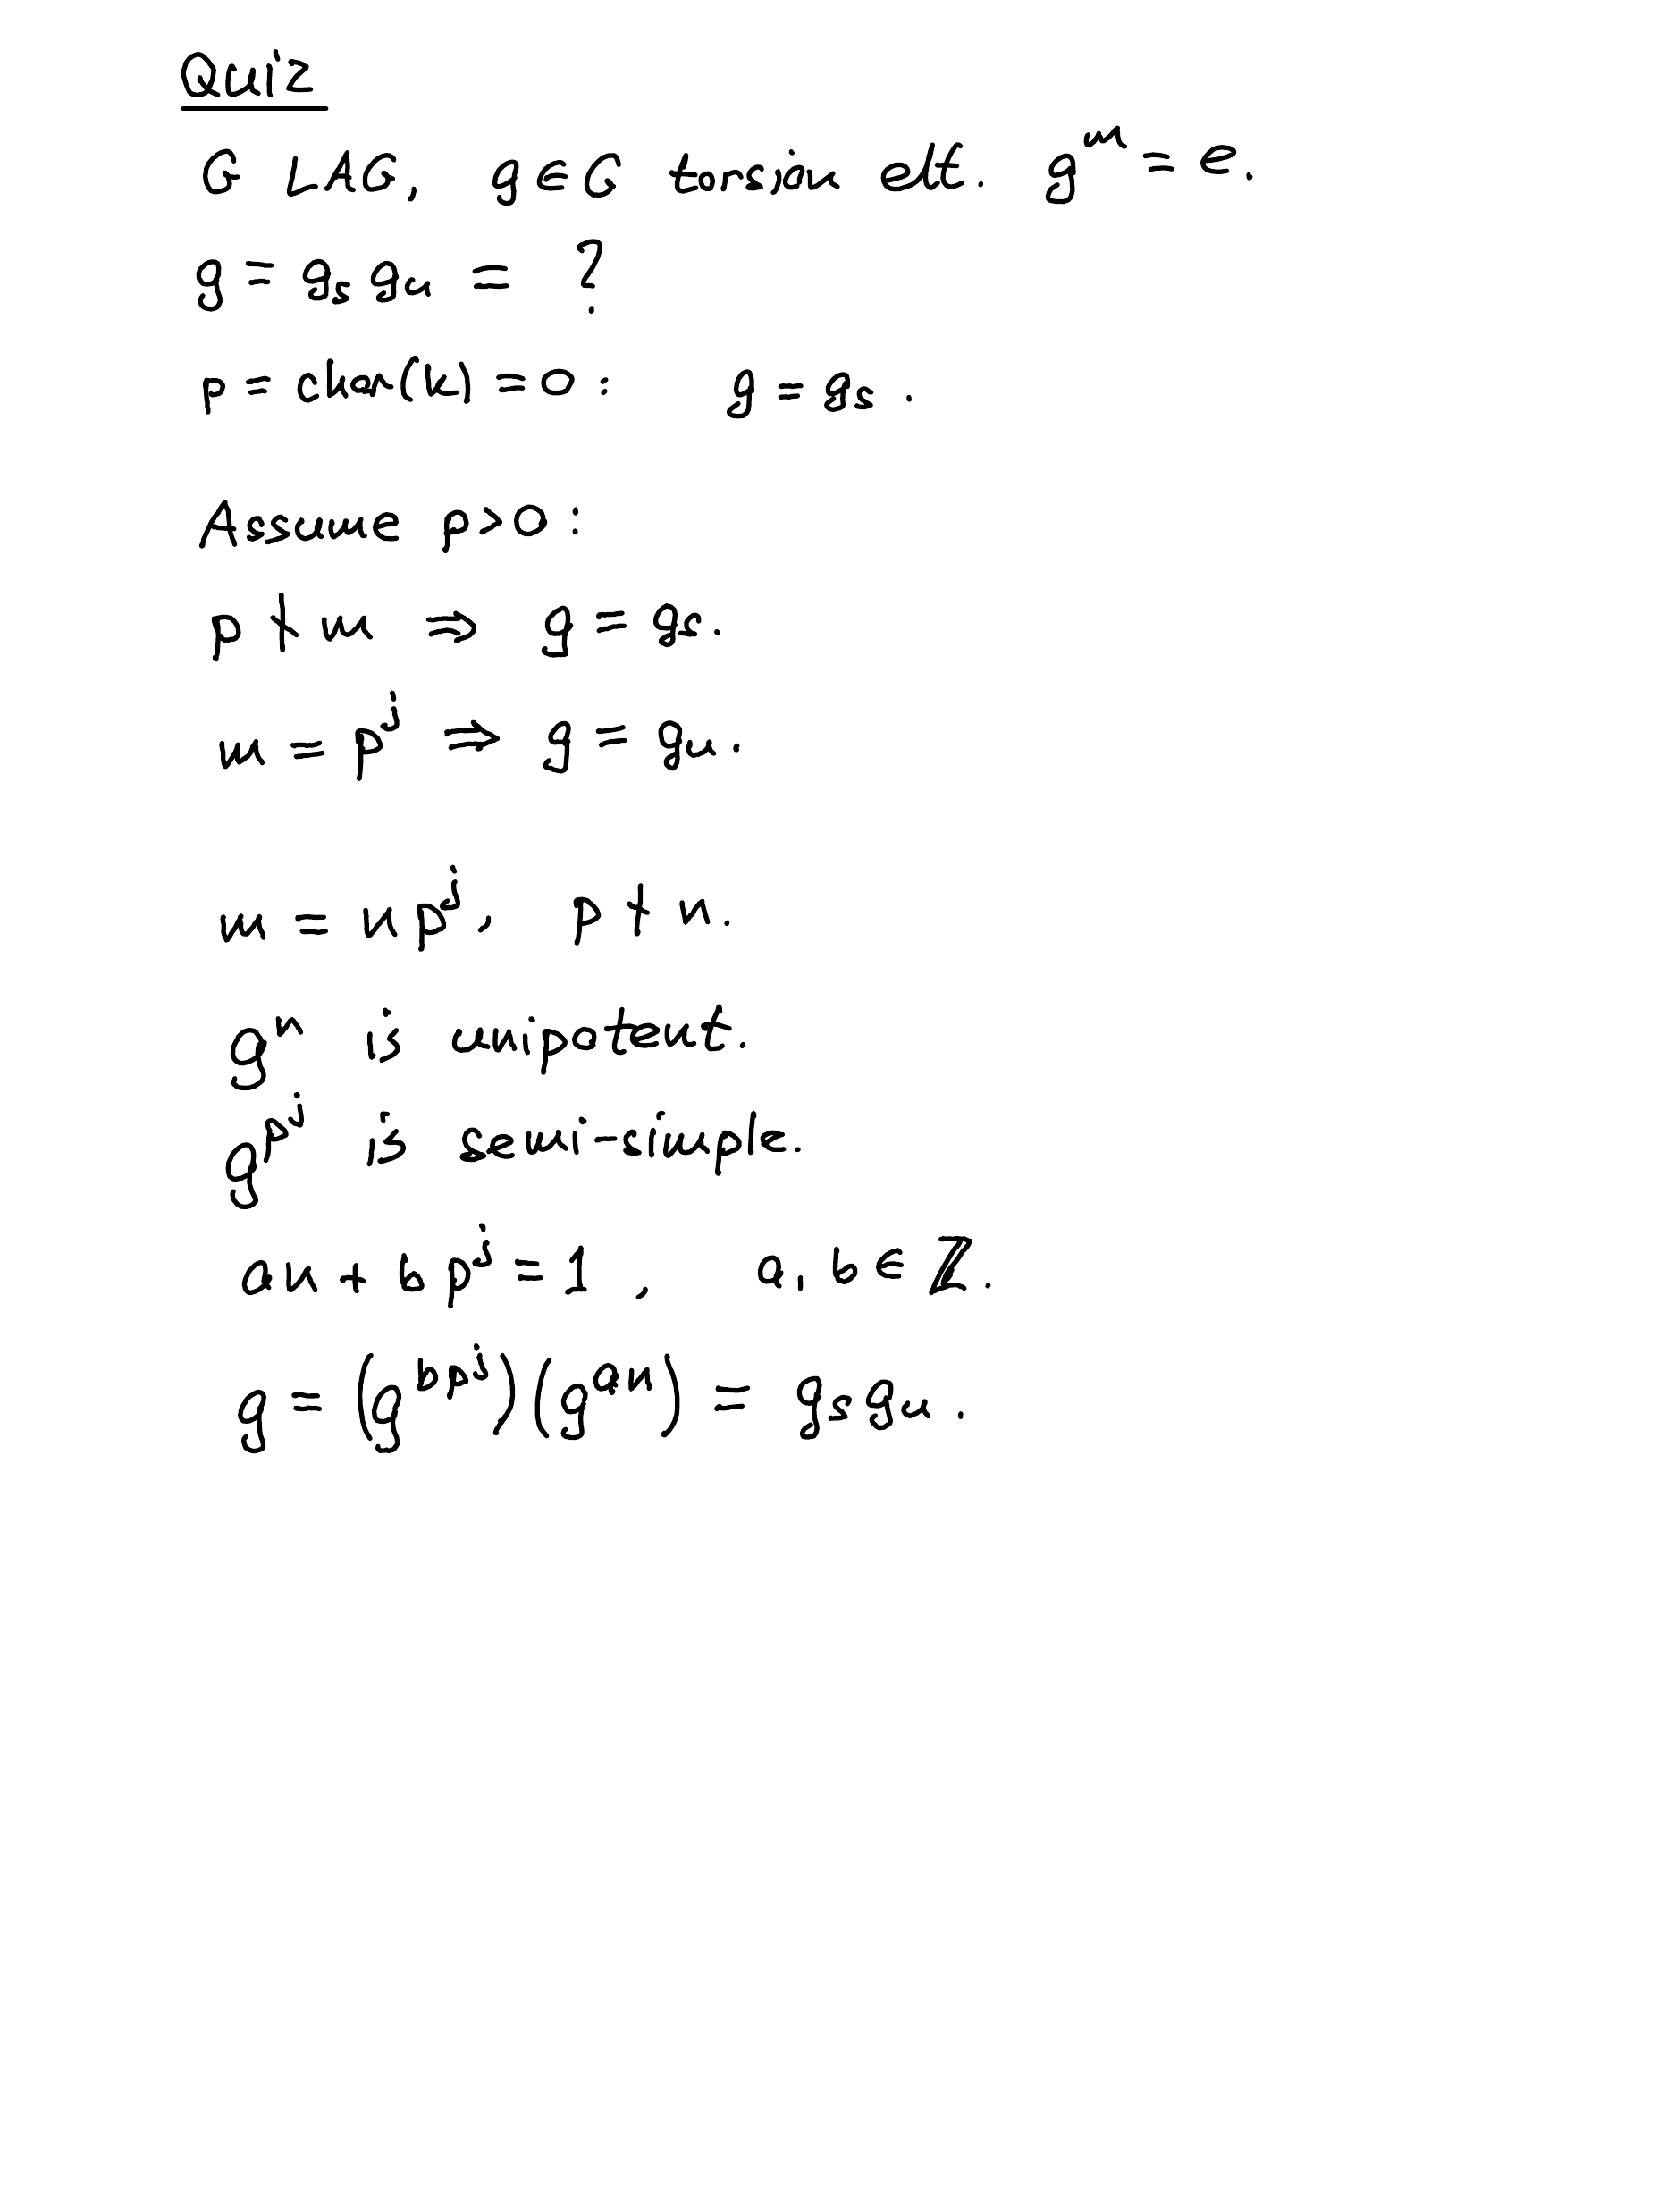 Quiz
G LAG, g ∈ G torsion elt. g^m = e.
g = g_s g_u = ?
p = char(k) = 0: g = g_s.
Assume p>0:
p ∤ m ⇒ g = g_s.
m = p^j ⇒ g = g_u.
m = np^j, p ∤ n.
g^n is unipotent.
g^{p^j} is semi-simple.
an + bp^j = 1, a, b ∈ ℤ.
g = (g^{bp^j})(g^{an}) = g_s g_u.